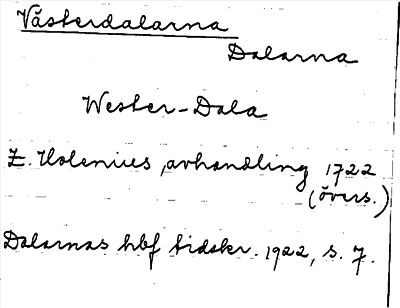 Västerdalarna
Dalarna
Wester-Dala
Z. Holenius, avhandling 1722
(övers.)
Dalarnas hbf tidskr. 1922, s. 7.